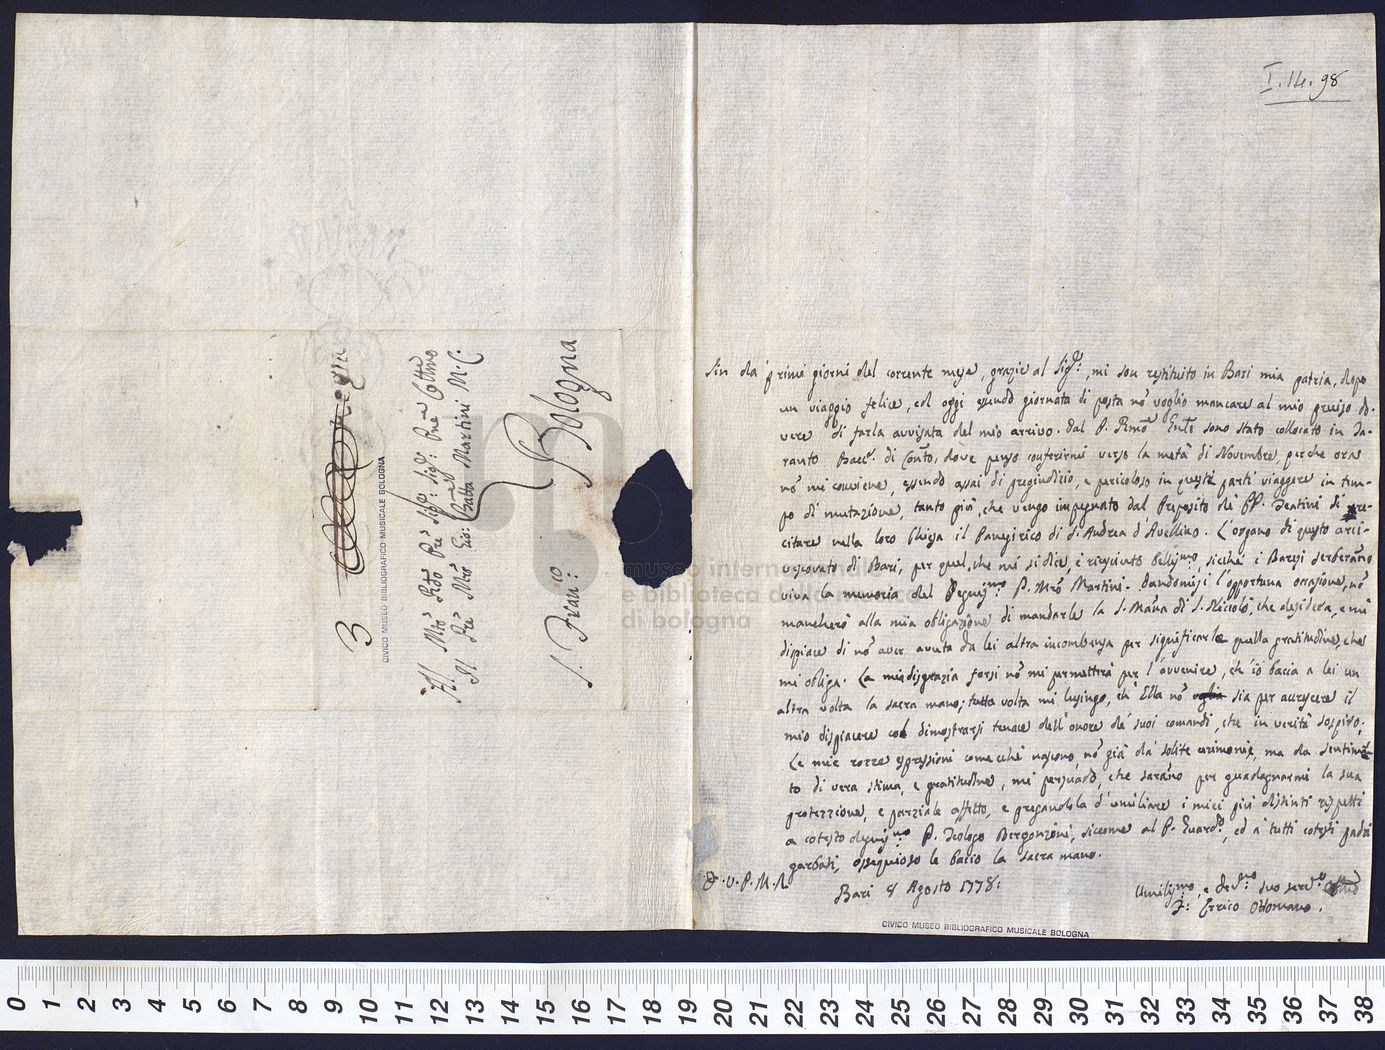 I.14.98
Sin da' primi giorni del corrente mese, grazie al Sig.re, mi son restituito in Bari mia patria, dopo
un viaggio felice, ed oggi essendo giornata di posta nō voglio mancare al mio preciso do-
vere di farla avvisata del mio arrivo. Dal P. Rmō sono stato collocato in Ta-
ranto Bacc.re di Conto, dove penso conferirmi verso la metà di Novembre, perche ora
nō mi conviene, essendo assai di pregiudizio, e pericoloso in queste parti viaggere in tem-
po di mutazione, tanto più, che vengo impegnato dal Preposito de' PP. Teatini di re-
citare nella loro Chiesa il Panegirico di S. Andrea d'Avellino. L'organo di questo arci-
vescovato di Bari, per quel, che mi si dice, è riuscito belliss.mo, sicché i Baresi serberanno
viva la memoria del Degniss.mo P. Mrō Martini. Dandomisi l'opportuna occasione, nō
mancherò alla mia obligazione di mandarle la S. Manna di S. Niccolò, che desidera, e mi
dispiace di nō aver avuta da lei altra incombenza per significarle quella gratitudine, che
mi obliga. La mia disgrazia forsi nō mi permetterà per l'avvenire, ch'io bacia a lei un
altra volta la sacra mano; tutta volta mi lusingo, ch'Ella nō sia per accrescere il
mio dispiacere col dimostrarsi tenace dell'onore de' suoi comandi, che in verità sospiro.
Le mie rozze espressioni come che nascono, nō già da solite cerimonie, ma da sentimē-
to di vera stima, e gratitudine, mi persuado, che saranno per guadagnarmi la sua
protezzione, e parziale affetto, e pregandola d'umiliare i miei più distinti rispetti
a cotesto degniss.mo P. Teologo Bergonzoni, siccome al P. Guard.o, ed a' tutti cotesti padri
garbati, ossequioso le bacio la sacra mano.
D. V. P. M. R.
Bari 8 Agosto 1778:
Umiliss.mo, e dev.mo suo serv.o
F: Errico Ottomano.
CIVICO MUSEO BIBLIOGRAFICO MUSICALE BOLOGNA
3
CIVICO MUSEO BIBLIOGRAFICO MUSICALE BOLOGNA
Al Mtō Rdō Prē Sig.r Sig.r Pnē Colmō
Il Prē Mrō Gio: Batta Martini M.C:
Bologna
S. Fran:co
museo internazionale
e biblioteca della musica
di bologna
0 1 2 3 4 5 6 7 8 9 10 11 12 13 14 15 16 17 18 19 20 21 22 23 24 25 26 27 28 29 30 31 32 33 34 35 36 37 38